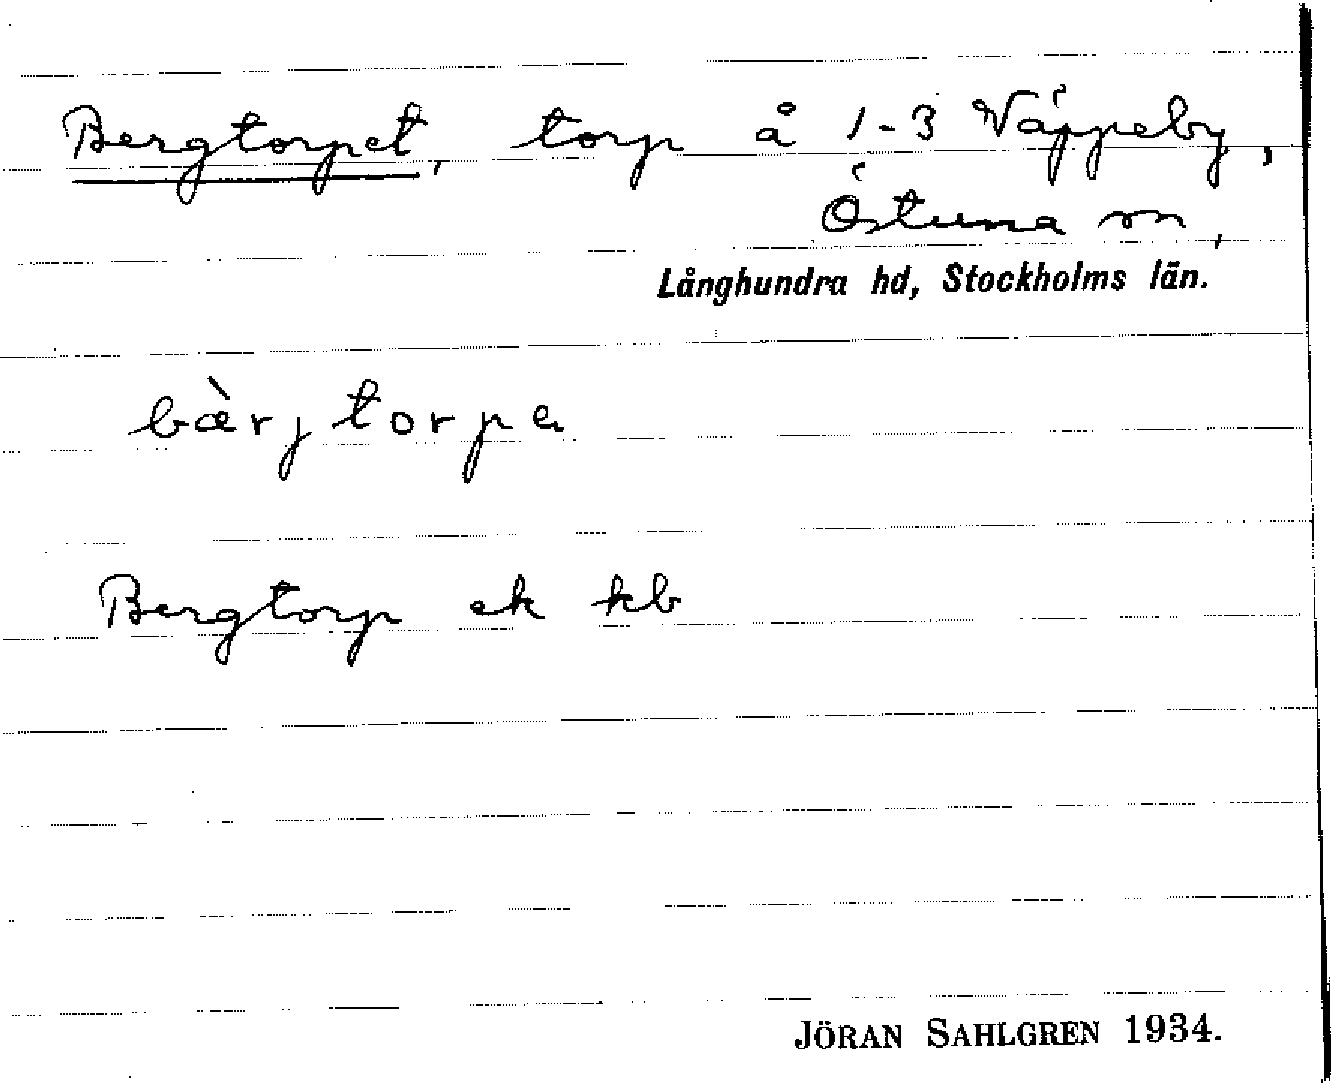 Bergtorpet, torp å 1-3 Väppeby,
Östuna sn,
Långhundra hd, Stockholms län.
bærjtorpa
Bergtorp ek kb
JÖRAN SAHLGREN 1934.